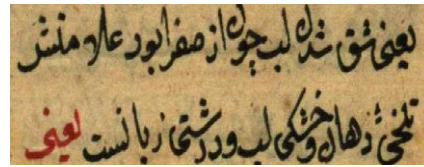 یعنی شق شدن لب چون از صفرا بود علامتش
تلخی دهان و خشکی لب و درشتی زبانست یعنی